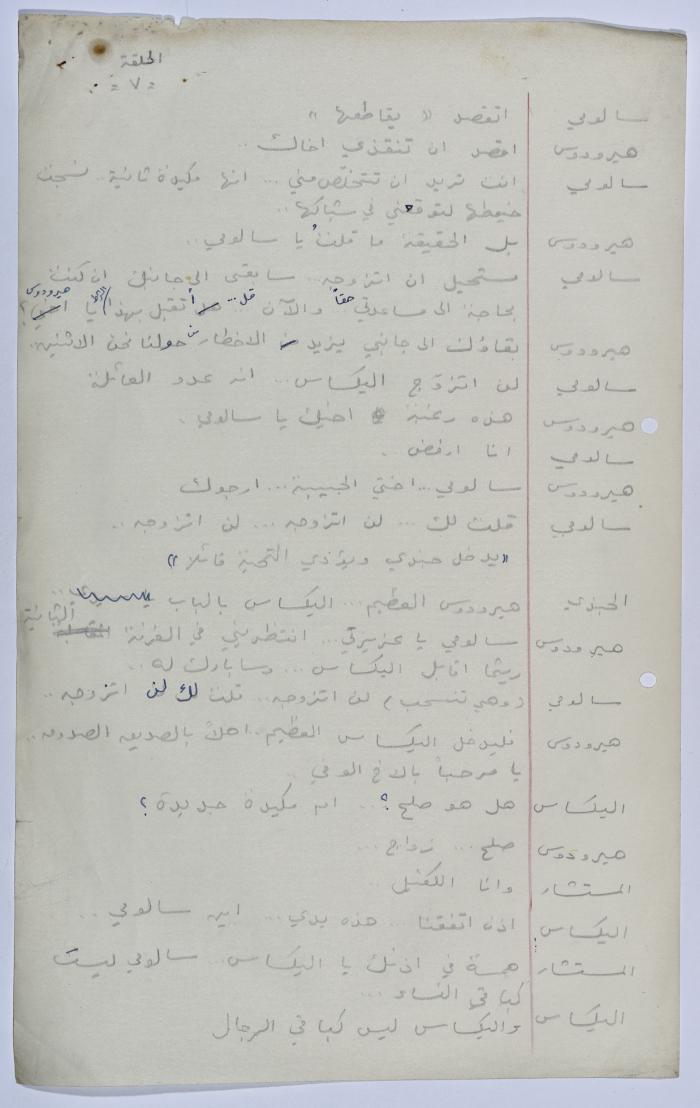 الحلقة
= ٧ =
سالومي اتقصد « يقاطعها »
هيرودوس اقصد ان تنقذي اخاك ..
سالومي انت تريد ان تتخلّص مني ... انها مكيدة ثانية .. نسجت
خيوطها لتوقعني في شباكها ..
هيرودوس بل الحقيقة ما قلتُ يا سالومي ..
سالومي مستحيل ان اتزوجه .. سابقى الى جانبك ان كنت
بحاجة الى مساعدتي حقاً والآن ... قل .. أتقبل بهذا يا هيرودوس ؟
هيرودوس بقاؤك الى جانبي يزيد من الاخطار حولنا نحن الاثنين ..
سالومي لن اتزوّج اليكساس ... انه عدو العائلة
هيرودوس هذه رغبة اخيك يا سالومي .
سالومي انا ارفض ..
هيرودوس سالومي .. اختي الحبيبة ... ارجوك
سالومي قلت لك ... لن اتزوجه ... لن اتزوجه ..
« يدخل جندي ويؤدي التحية قائلا »
الجندي هيرودوس العظيم ... اليكساس بالباب
هيرودوس سالومي يا عزيزتي ... انتظريني في الغرفة الثانية
ريثما اقابل اليكساس ... وسابارك له ..
سالومي ( وهي تنسحب ) لن اتزوجه .. قلت لك لن اتزوجه ..
هيرودوس فليدخل اليكساس العظيم .. اهلاً بالصديق الصدوق ..
يا مرحباً بالاخ الوفي ..
اليكساس هل هو صلح ؟ .. ام مكيدة جديدة ؟
هيرودوس صلح ... زواج ...
المستشار وانا الكفيل ..
اليكساس اذن اتفقنا ... هذه يدي ... اين سالومي ..
المستشار همسة في اذنك يا اليكساس .. سالومي ليست
كباقي النساء ...
اليكساس واليكساس ليس كباقي الرجال